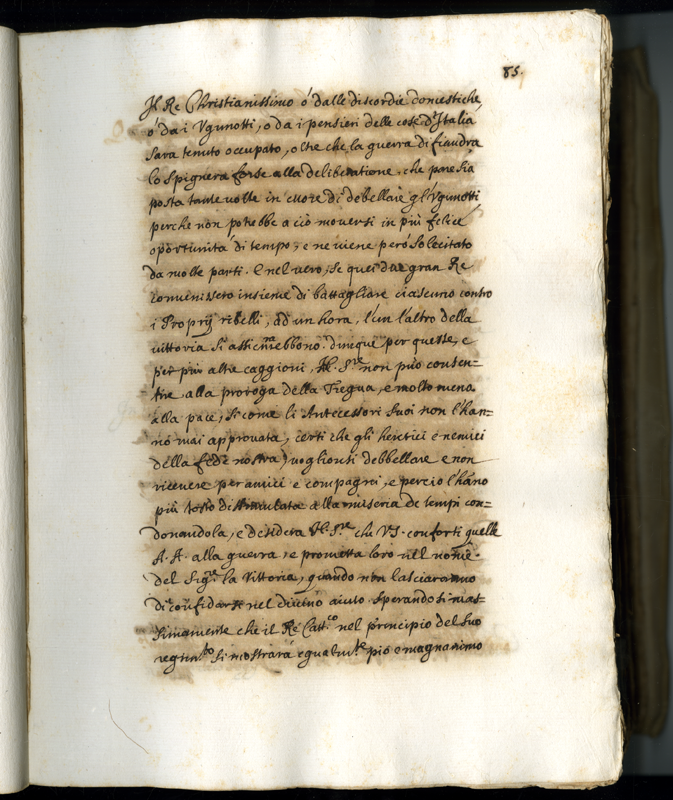 85.
Il Re Christianissimo ò dalle discordie domestiche,
ò da i Vgunotti, o da i pensieri delle cose d'Italia
sara tenuto occupato, oltre che la guerra di fiandra
lo spignerà forse alla deliberatione, che possia
posta tante volte in cuore di debellare gl'Vgunotti
perche non potrebbe a ciò moversi in più felice
oportunità di tempo; e ne viene però solecitato
da molte parti. E nel vero, se quei due gran Re
convenissero insieme di battagliare ciascuno contro
i Proprij ribelli, ad un hora, l'un l'altro della
vittoria si assicurarebbono. dunque per queste, e
per più altre caggioni, N. Sre non può consen=
tire, alla proroga della Tregua, e molto meno
alla pace, si come li Antecessori suoi non l'han=
no mai approvata, certi che gli heretici e nemici
della fede nostra, voglionsi debbellare e non
ricevere per amici e compagni, e perciò l'hãno
più tosto dissimulata alla miseria de tempi con=
donandola, e desidera N. Sre che VS. conforti quelle
A. A. alla guerra, e prometta loro nel nome
del Sigre la Vittoria, quando non lasciaranno
di confidarsi nel divino aiuto. Sperandosi mas=
simamente che il Re Cattco nel principio del suo
regimto si mostrarà egualmte pio e magnanimo